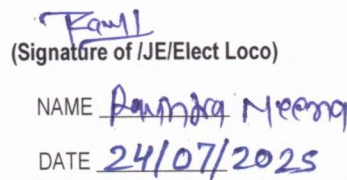 (Signature of /JE/Elect Loco)
NAME Ravindra Meena
DATE 24/07/2025